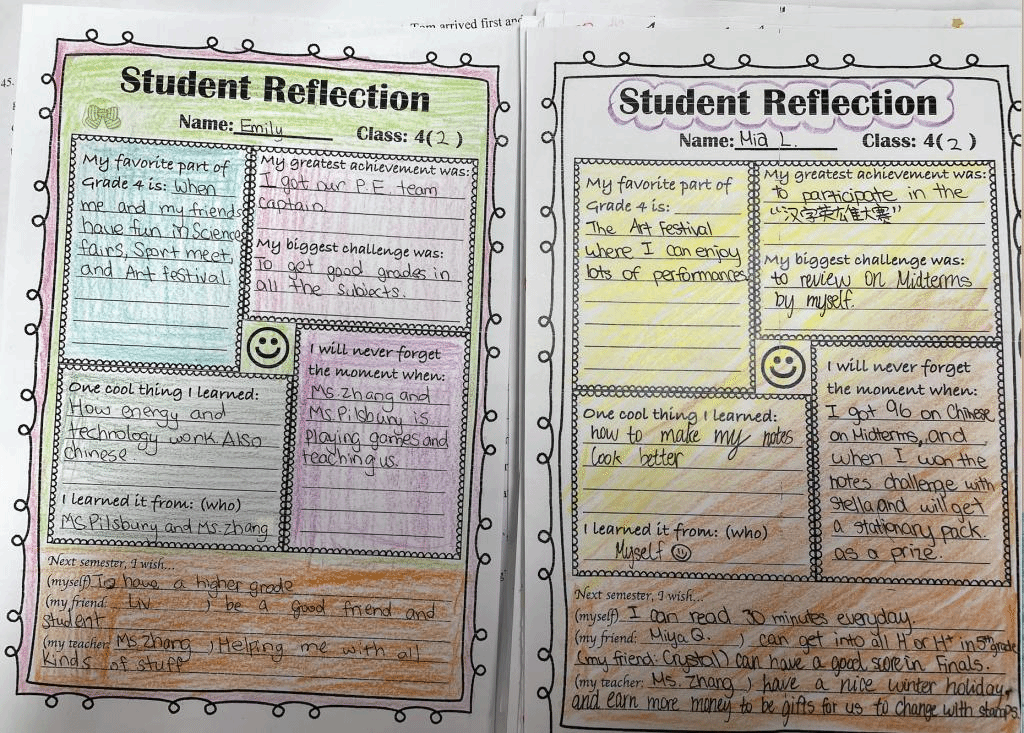 Tom arrived first and
45.
Student Reflection
Name: Emily Class: 4(2)
My favorite part of
Grade 4 is: When
me and my friends
have fun in Science
fairs, Sport meet,
and Art festival
My greatest achievement was:
I got our P.E team
captain.
My biggest challenge was:
To get good grades in
all the subjects.
One cool thing I learned:
How energy and
technology work. Also
chinese
I learned it from: (who)
MS.Pilsbury and Ms.zhang
I will never forget
the moment when:
MS.zhang and
MS.Pilsbury is
playing games and
teaching us.
Next semester, I wish...
(myself) To have a higher grade
(my friend: Liv ) be a good friend and
student
(my teacher: MS.zhang ) Helping me with all
kinds of stuff
Student Reflection
Name: Mia L. Class: 4(2)
My favorite part of
Grade 4 is:
The Art Festival
where I can enjoy
lots of performances
My greatest achievement was:
to participate in the
“汉字英雄大赛”
My biggest challenge was:
to review on Midterms
by myself.
One cool thing I learned:
how to make my notes
look better
I learned it from: (who)
Myself
I will never forget
the moment when:
I got 96 on Chinese
on Midterms, and
when I won the
notes challenge with
Stella and will get
a stationary pack
as a prize.
Next semester, I wish...
(myself) I can read 30 minutes everyday.
(my friend: Miya Q. ) can get into all H or H+ in 5th grade
(my friend: Crystal) can have a good score in Finals.
(my teacher: Ms. Zhang ) have a nice winter holiday,
and earn more money to be gifts for us to change with stamps.